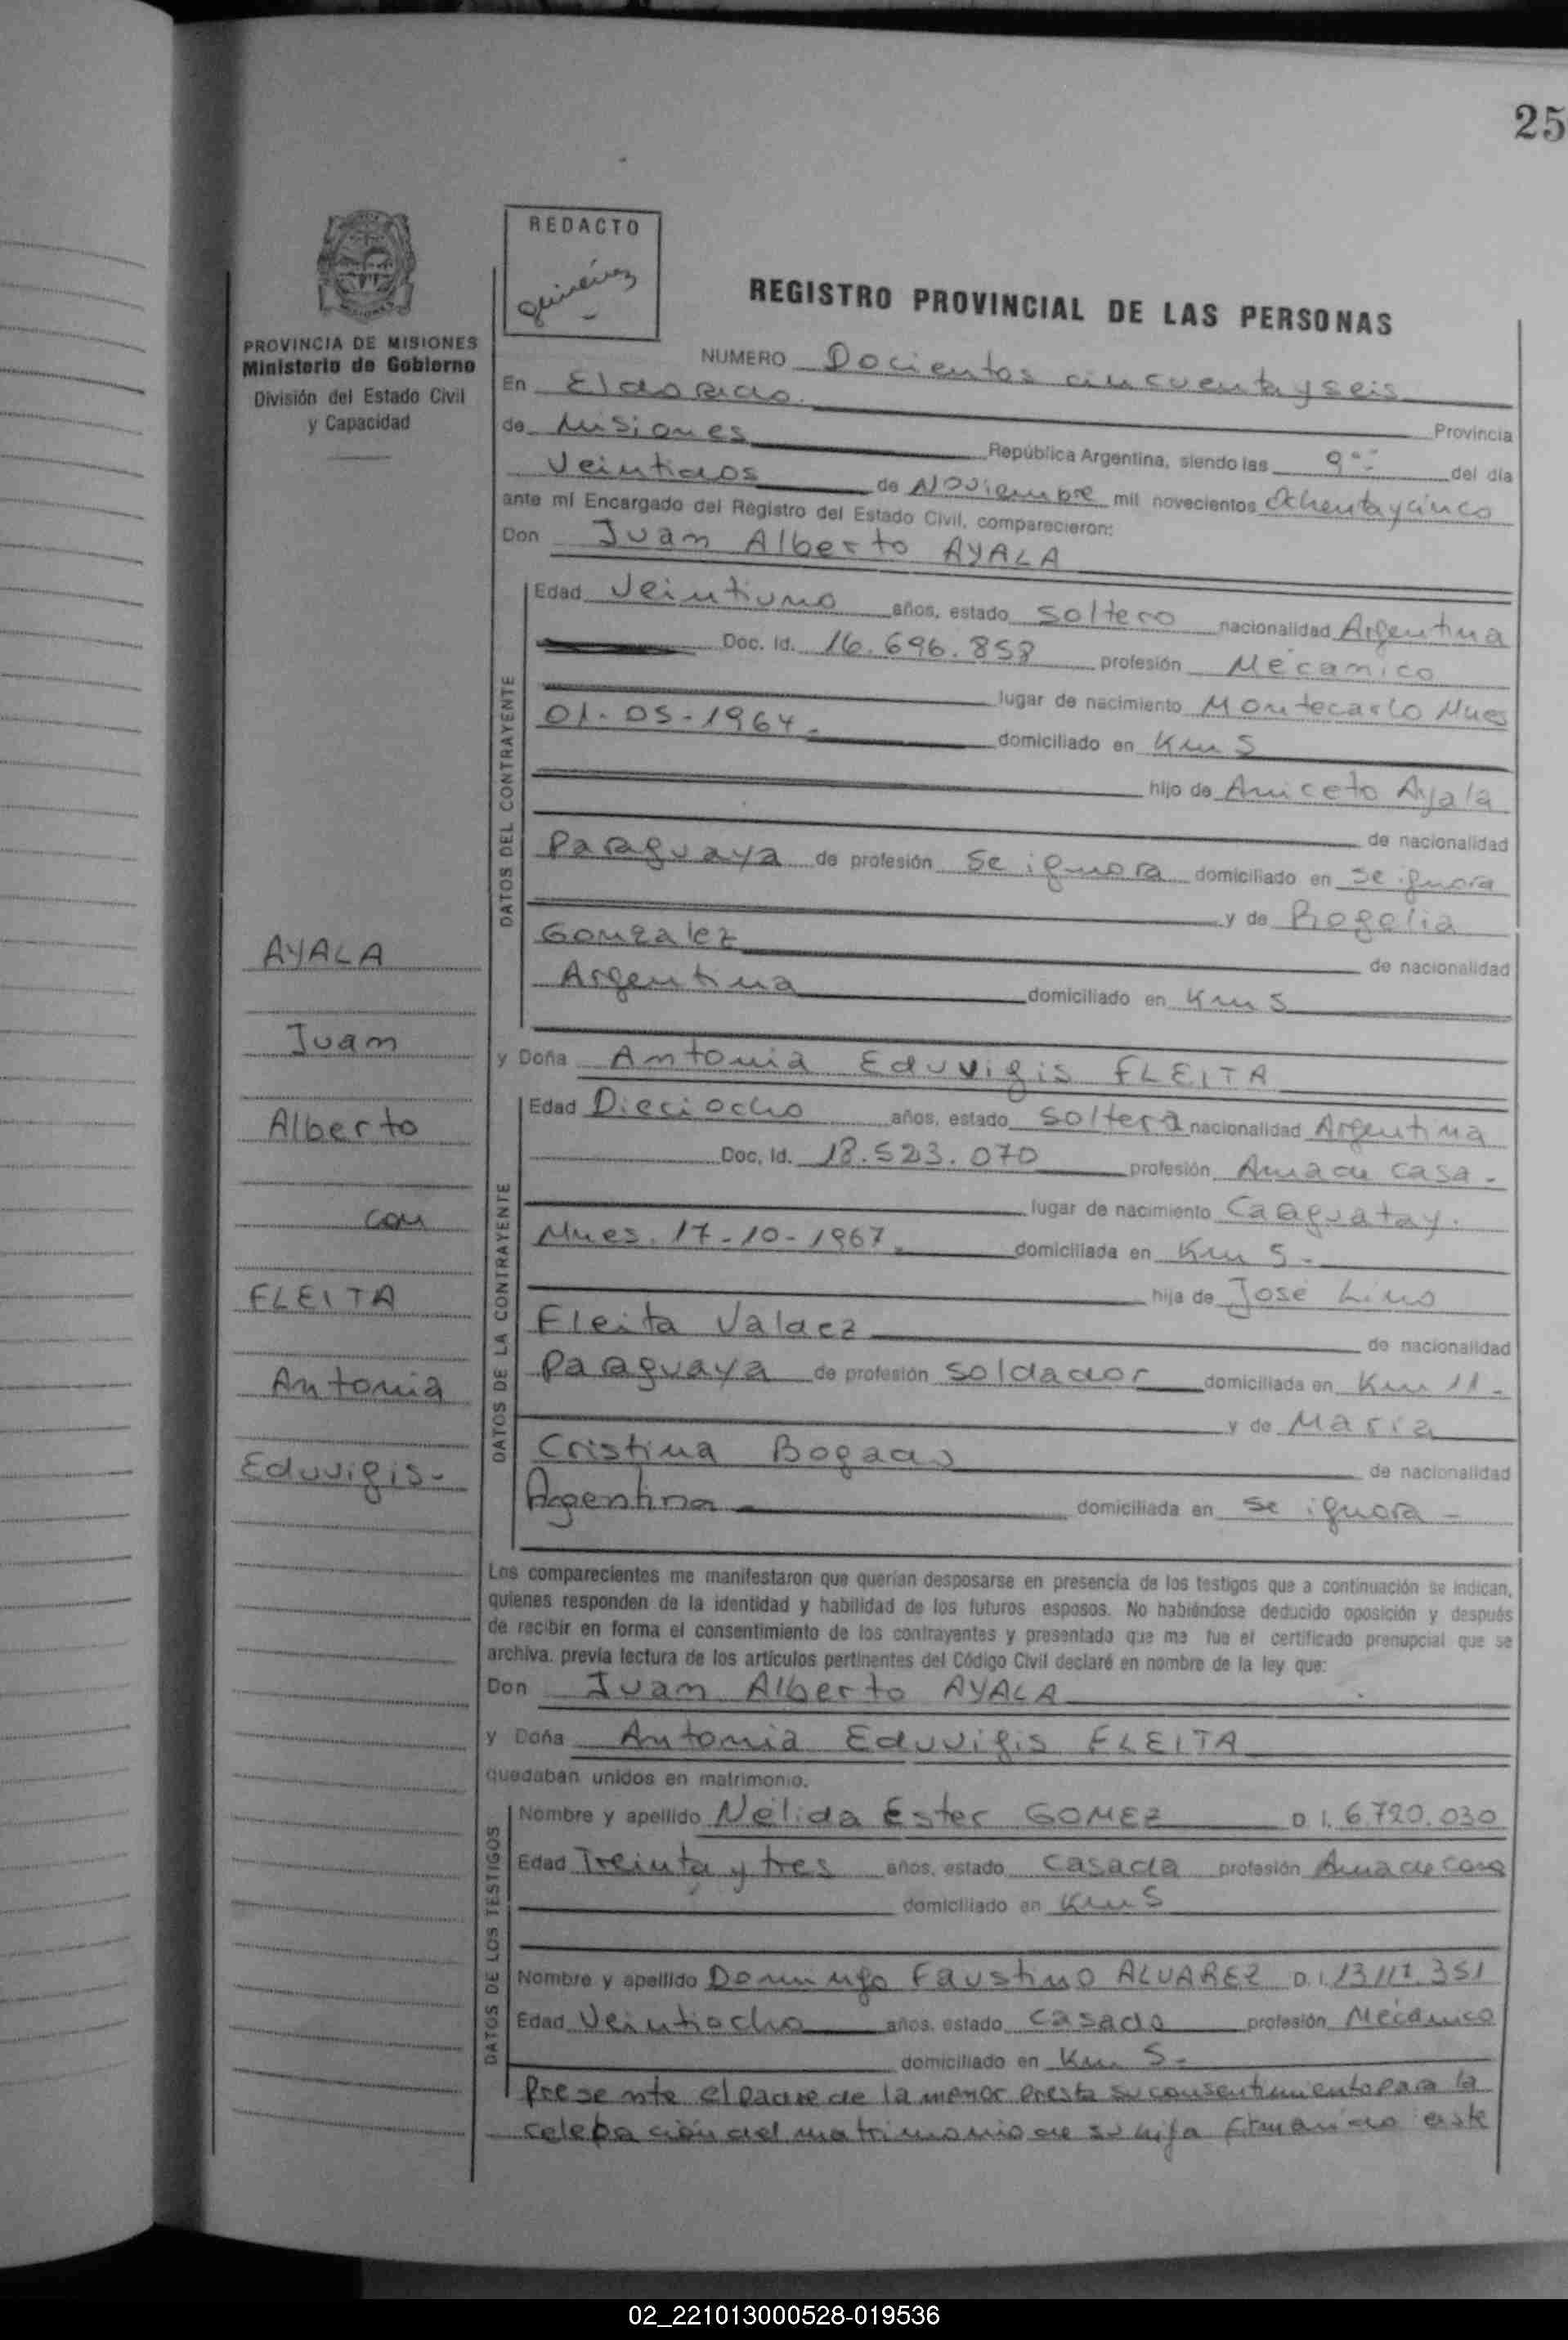 25
REDACTO
REGISTRO PROVINCIAL DE LAS PERSONAS
PROVINCIA DE MISIONES
Ministerio de Gobierno
División del Estado Civil
y Capacidad
NUMERO Docientos cincuenta y seis
En Eldorado
Provincia
de Misiones República Argentina, siendo las 9 del día
Veintidos de Noviembre mil novecientos Ochenta y cinco
ante mí Encargado del Registro del Estado Civil, comparecieron:
Don Juan Alberto AYALA
DATOS DEL CONTRAYENTE
Edad Veintiuno años, estado soltero nacionalidad Argentina
Doc. Id. 16.696.858 profesión Mecanico
lugar de nacimiento Montecarlo Mnes
01-05-1964.- domiciliado en Km 5
hijo de Aniceto Ayala
de nacionalidad
Paraguaya de profesión se ignora domiciliado en se ignora
y de Rogelia
Gonzalez de nacionalidad
Argentina domiciliado en Km 5
y Doña Antonia Eduvigis FLEITA
DATOS DE LA CONTRAYENTE
Edad Dieciocho años, estado soltera nacionalidad Argentina
Doc. Id. 18.523.070 profesión Ama de casa.-
lugar de nacimiento Caaguatay.
Mnes. 17-10-1967.- domiciliada en Km 5.-
hija de José Lino
Fleita Valdez de nacionalidad
Paraguaya de profesión soldador domiciliada en Km 11.-
y de Maria
Cristina Bogado de nacionalidad
Argentina domiciliada en se ignora -
AYALA
Juan
Alberto
con
FLEITA
Antonia
Eduvigis-
Los comparecientes me manifestaron que querían desposarse en presencia de los testigos que a continuación se indican,
quienes responden de la identidad y habilidad de los futuros esposos. No habiéndose deducido oposición y después
de recibir en forma el consentimiento de los contrayentes y presentado que me fue el certificado prenupcial que se
archiva, previa lectura de los artículos pertinentes del Código Civil declaré en nombre de la ley que:
Don Juan Alberto AYALA
y Doña Antonia Eduvigis FLEITA
quedaban unidos en matrimonio.
DATOS DE LOS TESTIGOS
Nombre y apellido Nélida Ester GOMEZ D I. 6.720.030
Edad Treinta y tres años, estado casada profesión Ama de casa
domiciliado en Km 5
Nombre y apellido Domingo Faustino ALVAREZ D. I. 13.117.351
Edad Veintiocho años, estado casado profesión Mecánico
domiciliado en Km 5-
Presente el padre de la menor presta su consentimiento para la
celebación del matrimonio de su hija firmando este
02_221013000528-019536